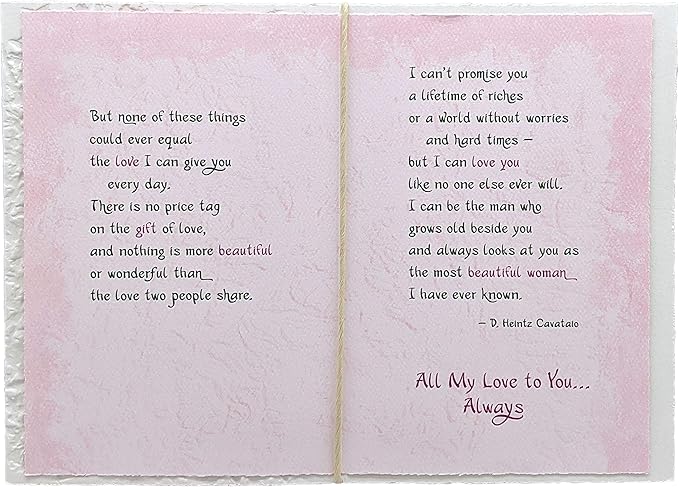 But none of these things
could ever equal
the love I can give you
every day.
There is no price tag
on the gift of love,
and nothing is more beautiful
or wonderful than
the love two people share.
I can't promise you
a lifetime of riches
or a world without worries
and hard times –
but I can love you
like no one else ever will.
I can be the man who
grows old beside you
and always looks at you as
the most beautiful woman
I have ever known.
– D. Heintz Cavataio
All My Love to You...
Always